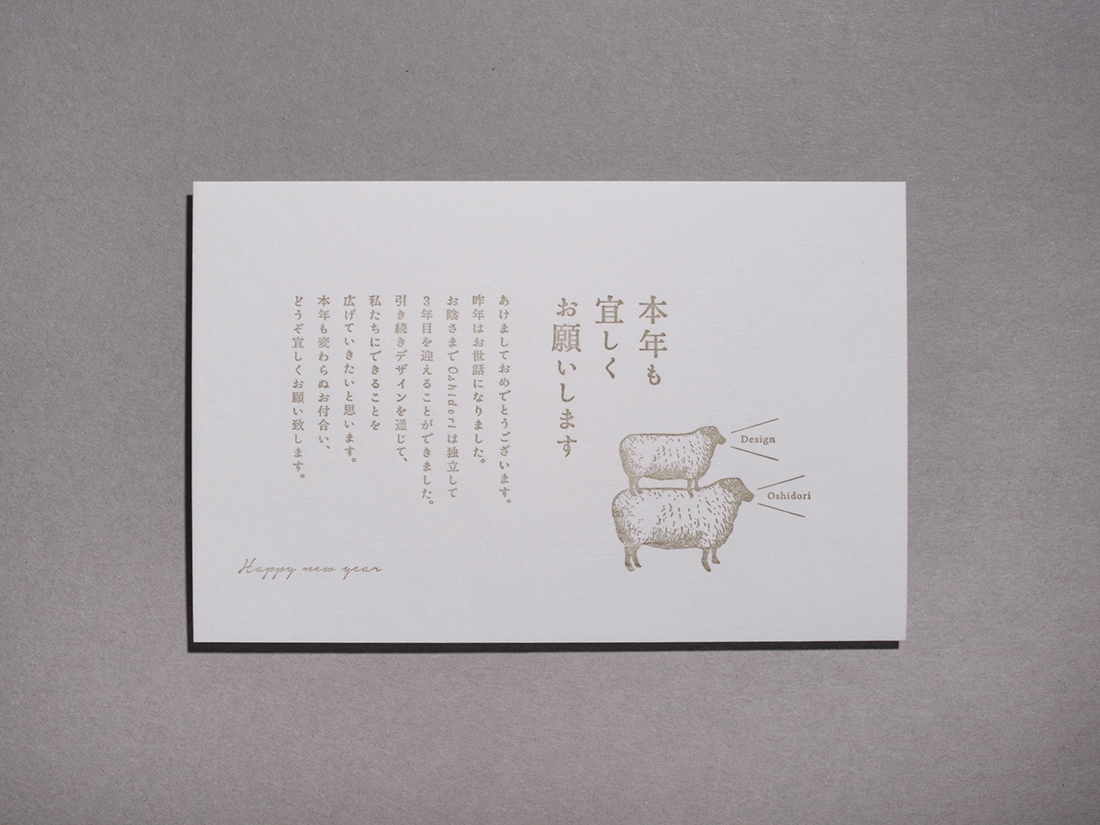 本年も
宜しく
お願いします
Design
Oshidori
あけましておめでとうございます。
昨年はお世話になりました。
お陰さまでOshidoriは独立して
3年目を迎えることができました。
引き続きデザインを通じて、
私たちにできることを
広げていきたいと思います。
本年も変わらぬお付合い、
どうぞ宜しくお願い致します。
Happy new year